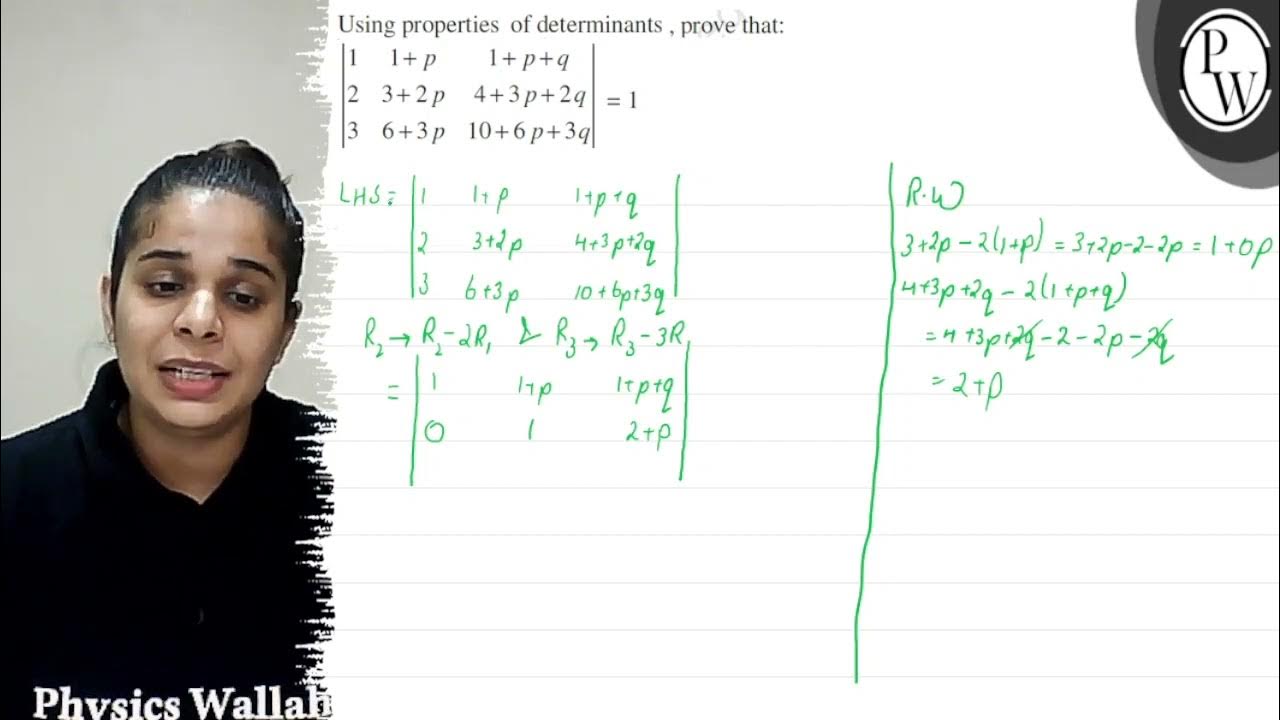 Using properties of determinants , prove that:
|1 1+p 1+p+q|
|2 3+2p 4+3p+2q| = 1
|3 6+3p 10+6p+3q|
PW
LHS = |1 1+p 1+p+q|
|2 3+2p 4+3p+2q|
|3 6+3p 10+6p+3q|
R₂ → R₂-2R₁ & R₃ → R₃-3R₁
= |1 1+p 1+p+q|
|0 1 2+p|
R.W
3+2p-2(1+p) = 3+2p-2-2p = 1+0p
4+3p+2q-2(1+p+q)
= 4+3p+2q-2-2p-2q
= 2+p
Physics Wallah